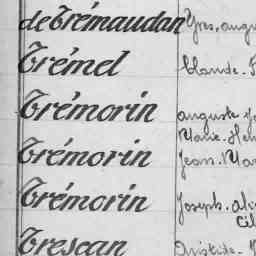 de Trémaudan Yves, augu
Trémel Claude. F
Trémorin auguste
Marie. Hen
Trémorin Jean. Mar
Trémorin Joseph. ale
Trescan Aristide.